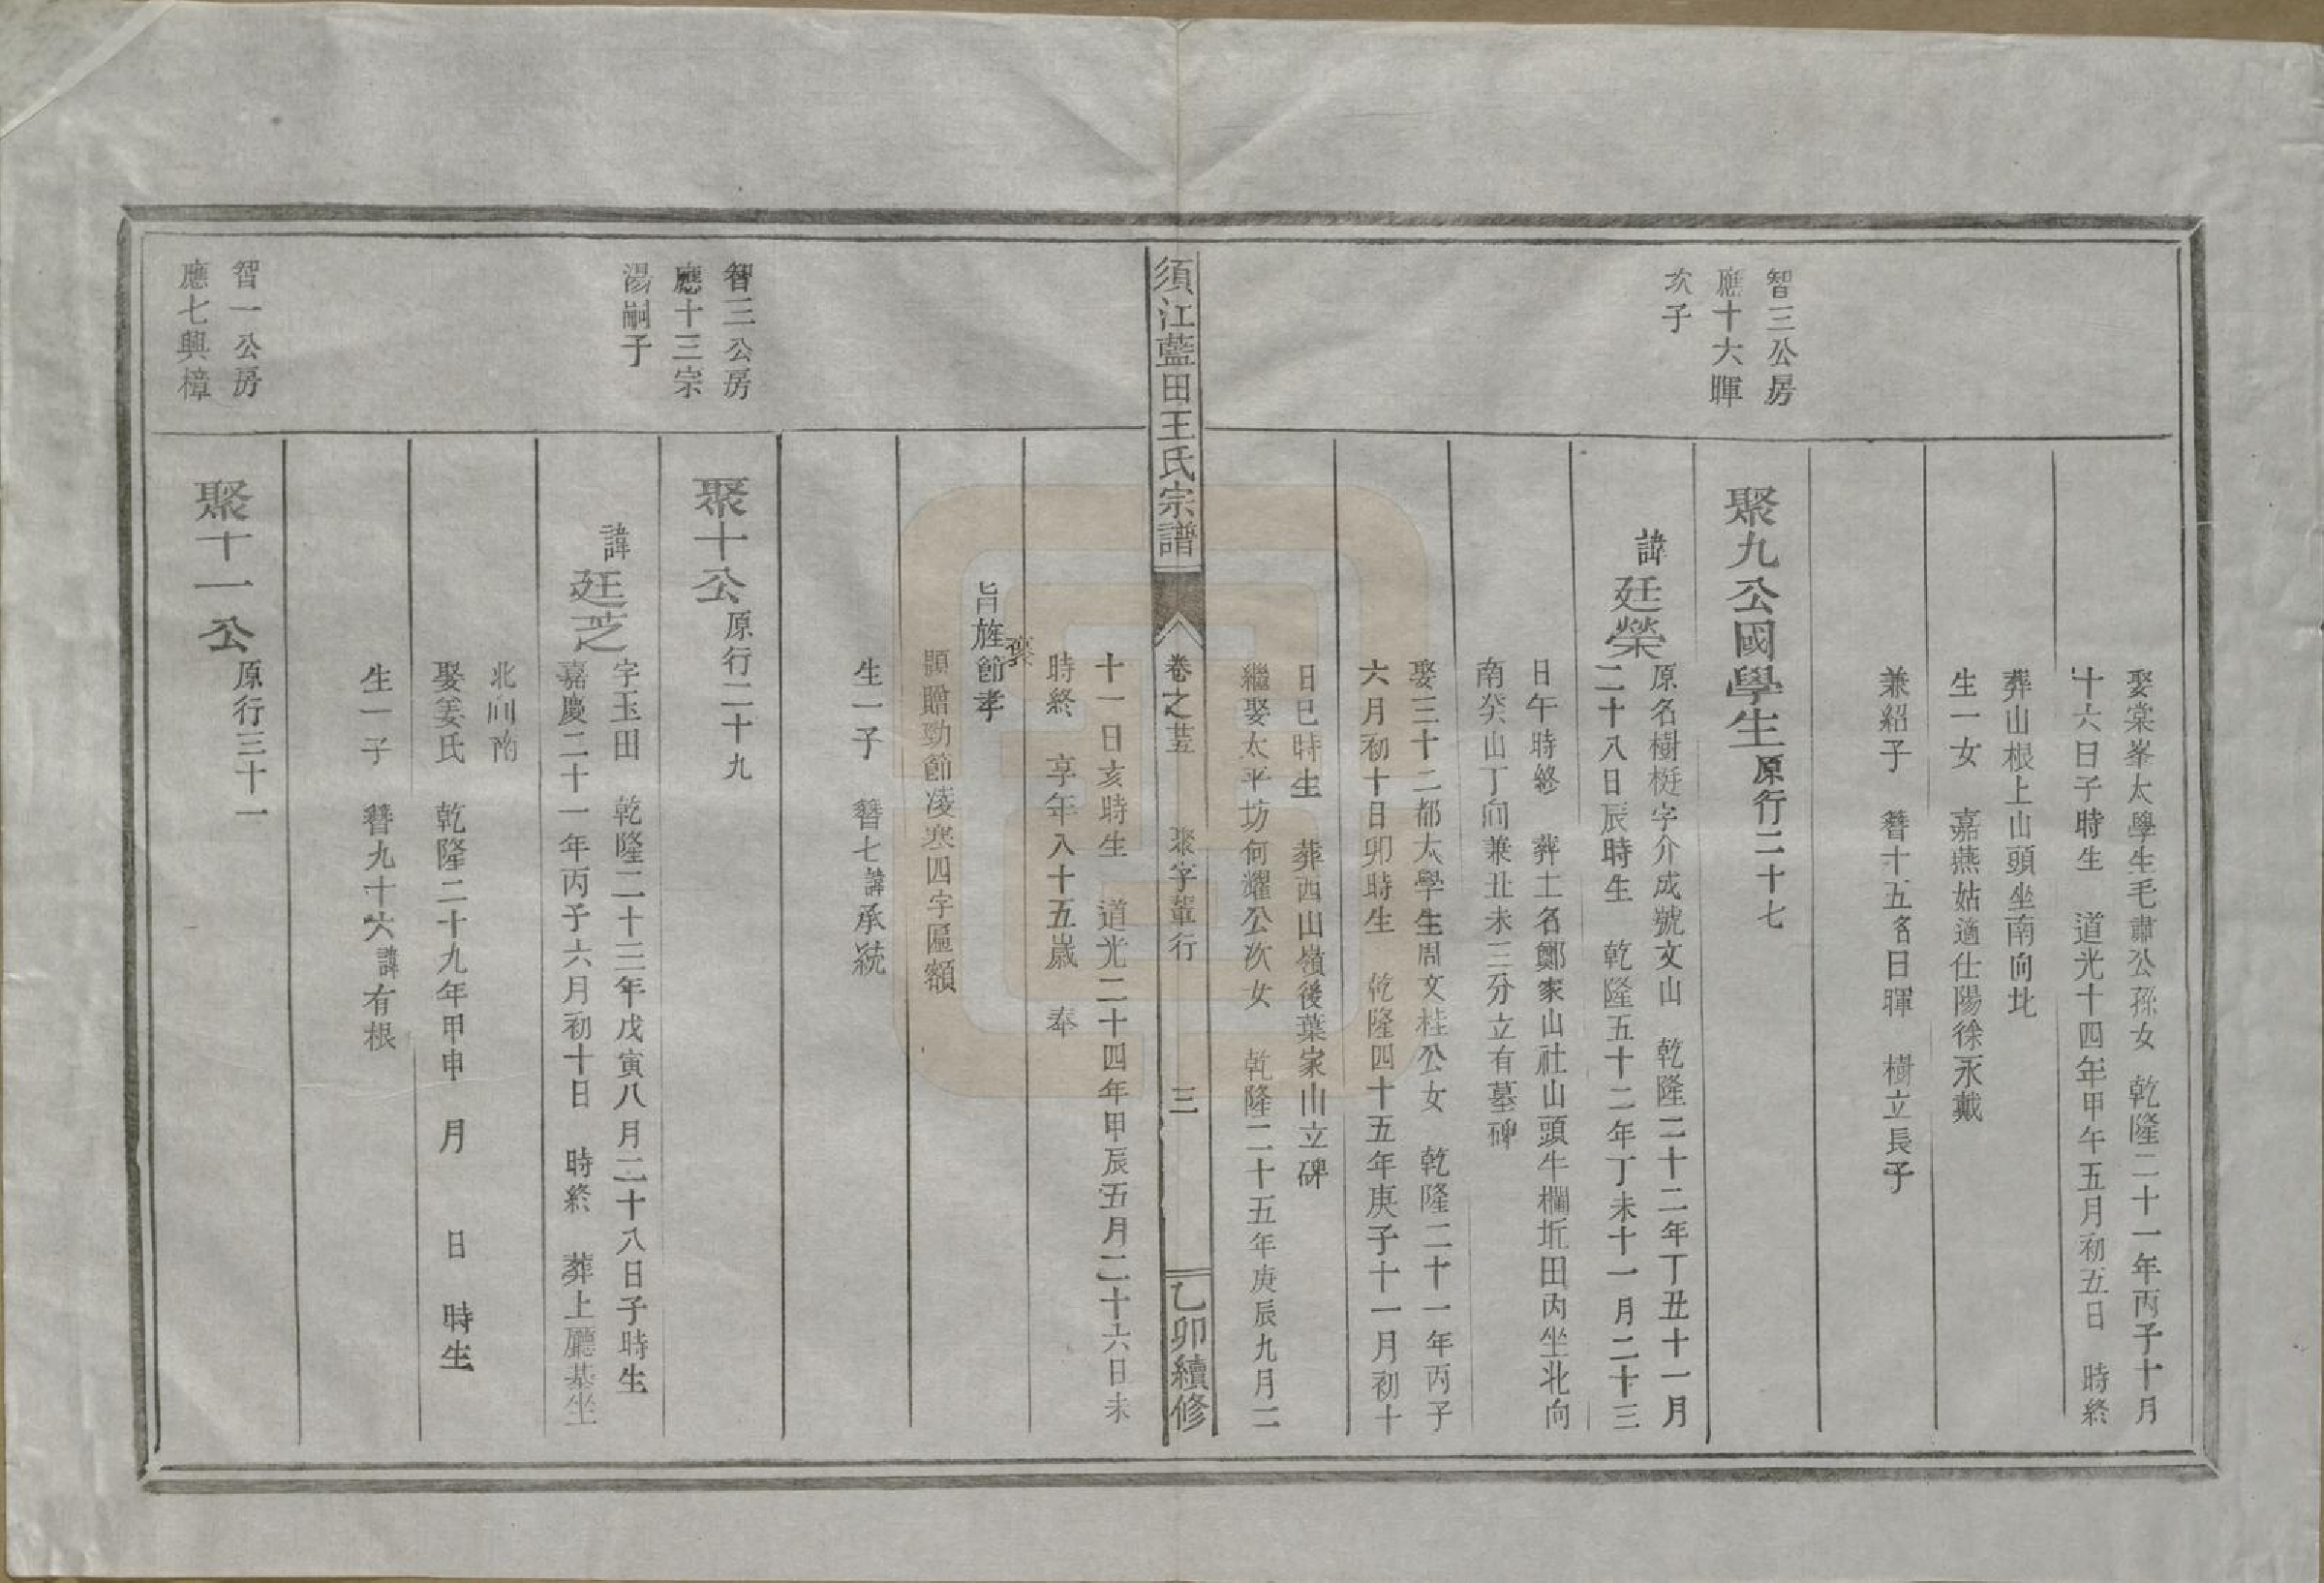 娶棠峯太學生毛肅公孫女 乾隆二十一年丙子十月
十六日子時生 道光十四年甲午五月初五日 時終
葬山根上山頭坐南向北
生一女 嘉燕姑適仕陽徐永戴
兼紹子 簪十五名日暉 樹立長子
智三公房
應十大暉
次子
聚九公國學生原行二十七
諱廷榮
原名樹梃字介成號文山 乾隆二十二年丁丑十一月
二十八日辰時生 乾隆五十二年丁未十一月二十三
日午時終 葬土名鄭家山社山頭牛欄坵田內坐北向
南癸山丁向兼丑未三分立有墓碑
娶三十二都太學生周文桂公女 乾隆二十一年丙子
六月初十日卯時生 乾隆四十五年庚子十一月初十
日巳時生 葬西山嶺後葉家山立碑
繼娶太平坊何耀公次女 乾隆二十五年庚辰九月二
須江藍田王氏宗譜
卷之荳 聚字輩行 三
乙卯續修
十一日亥時生 道光二十四年甲辰五月二十六日未
時終 享年八十五歲 奉
旨旌節孝
顯贈勁節凌寒四字匾額
生一子 簪七諱承統
智三公房
應十三宗
湯嗣子
聚十公原行二十九
諱廷芝
字玉田 乾隆二十三年戊寅八月二十八日子時生
嘉慶二十一年丙子六月初十日 時終 葬上廳基坐
北向南
娶姜氏 乾隆二十九年甲申 月 日 時生
生一子 簪九十六諱有根
智一公房
應七興樟
聚十一公原行三十一